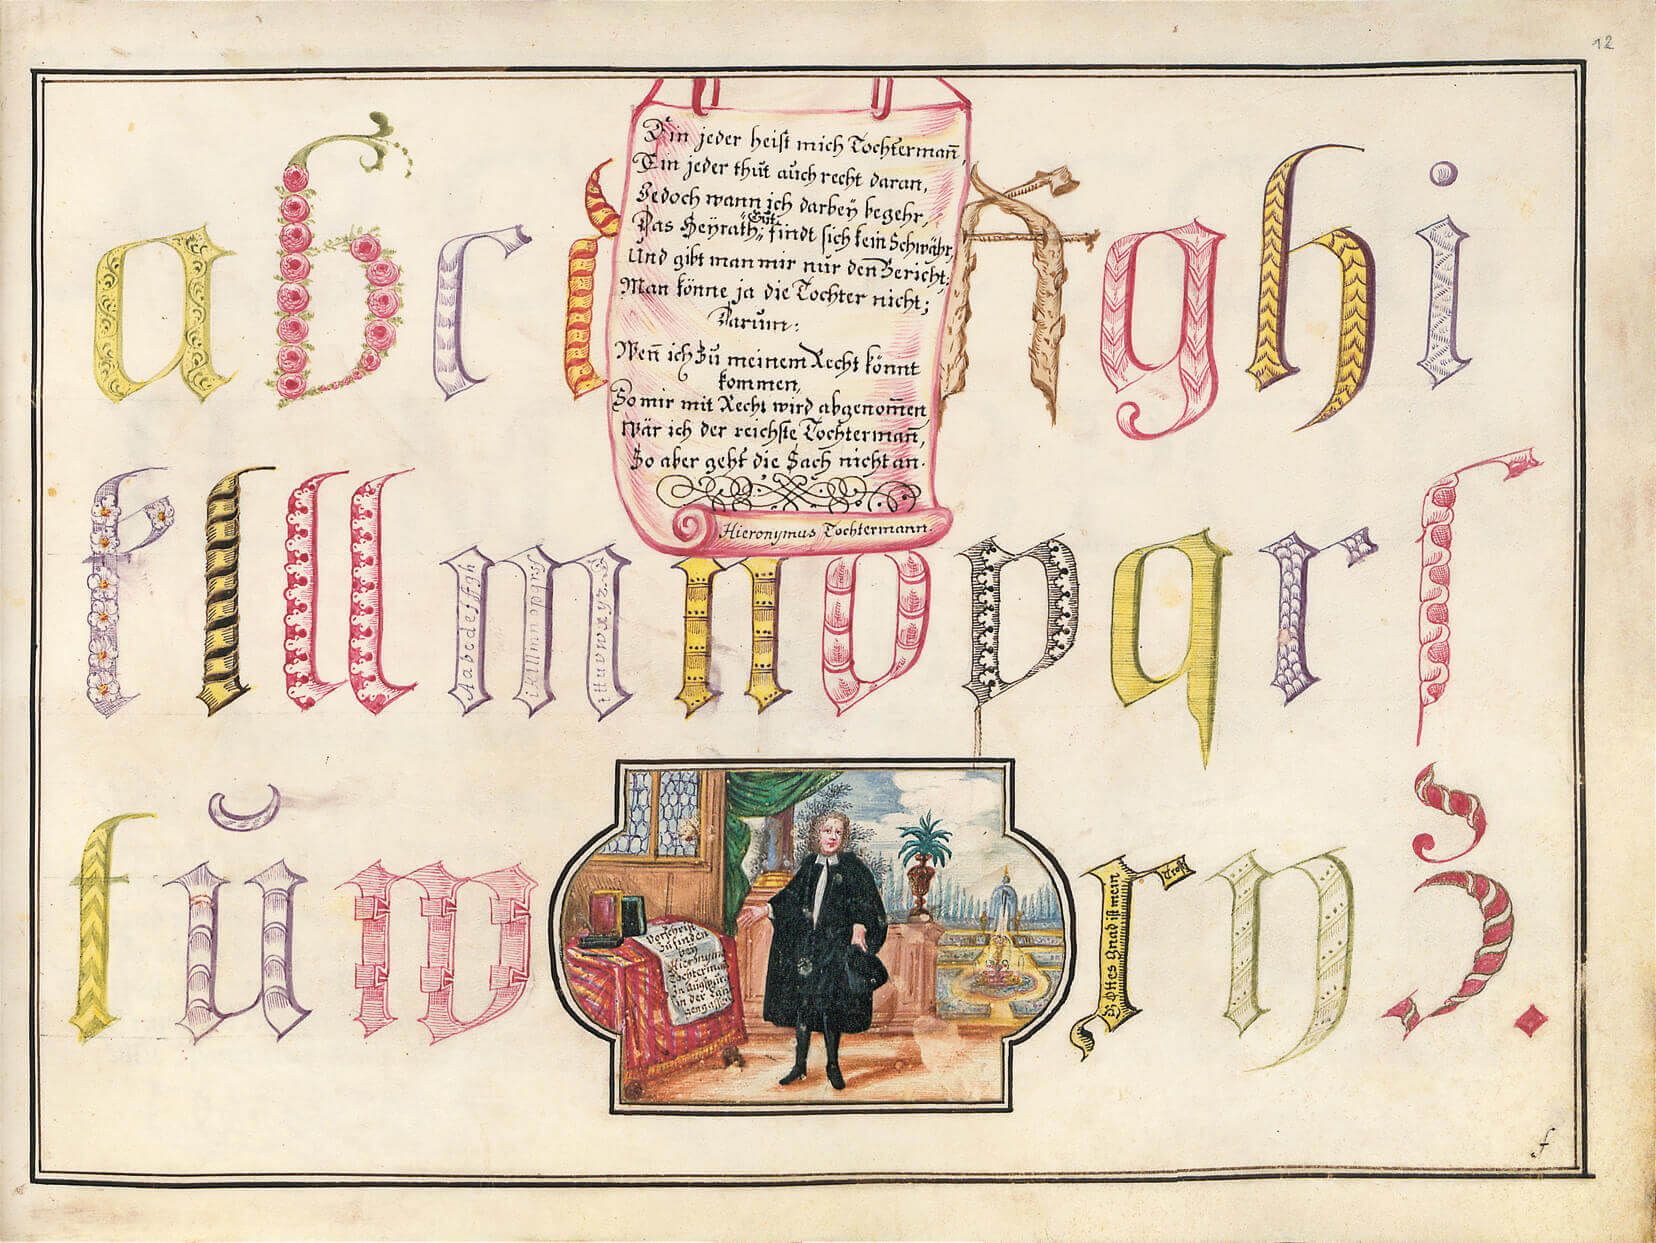 12
a b c d g h i
Ein jeder heist mich Tochterman̄,
Ein jeder thut auch recht daran,
Jedoch wann ich darbeÿ begehr,
Das Heÿrath "Gut" findt sich kein Schwähr,
Und gibt man mir nur den Bericht;
Man könne ja die Tochter nicht;
Darum:
Wen̄ ich Zu meinem Recht könnt
kommen,
So mir mit Recht wird abgenom̄en
Wär ich der reichste Tochterman̄,
So aber geht die Sach nicht an.
Hieronymus Tochtermann.
k l ll m n o p q r ſ
Aabcdefffgh
iklmn
ttuvwxyz.
t ŭ w x y z.
Gottes Gnad ist mein
Trost
Zufinden
beÿ
Hieronymus
Tochterman
in Augspurg
in der
f